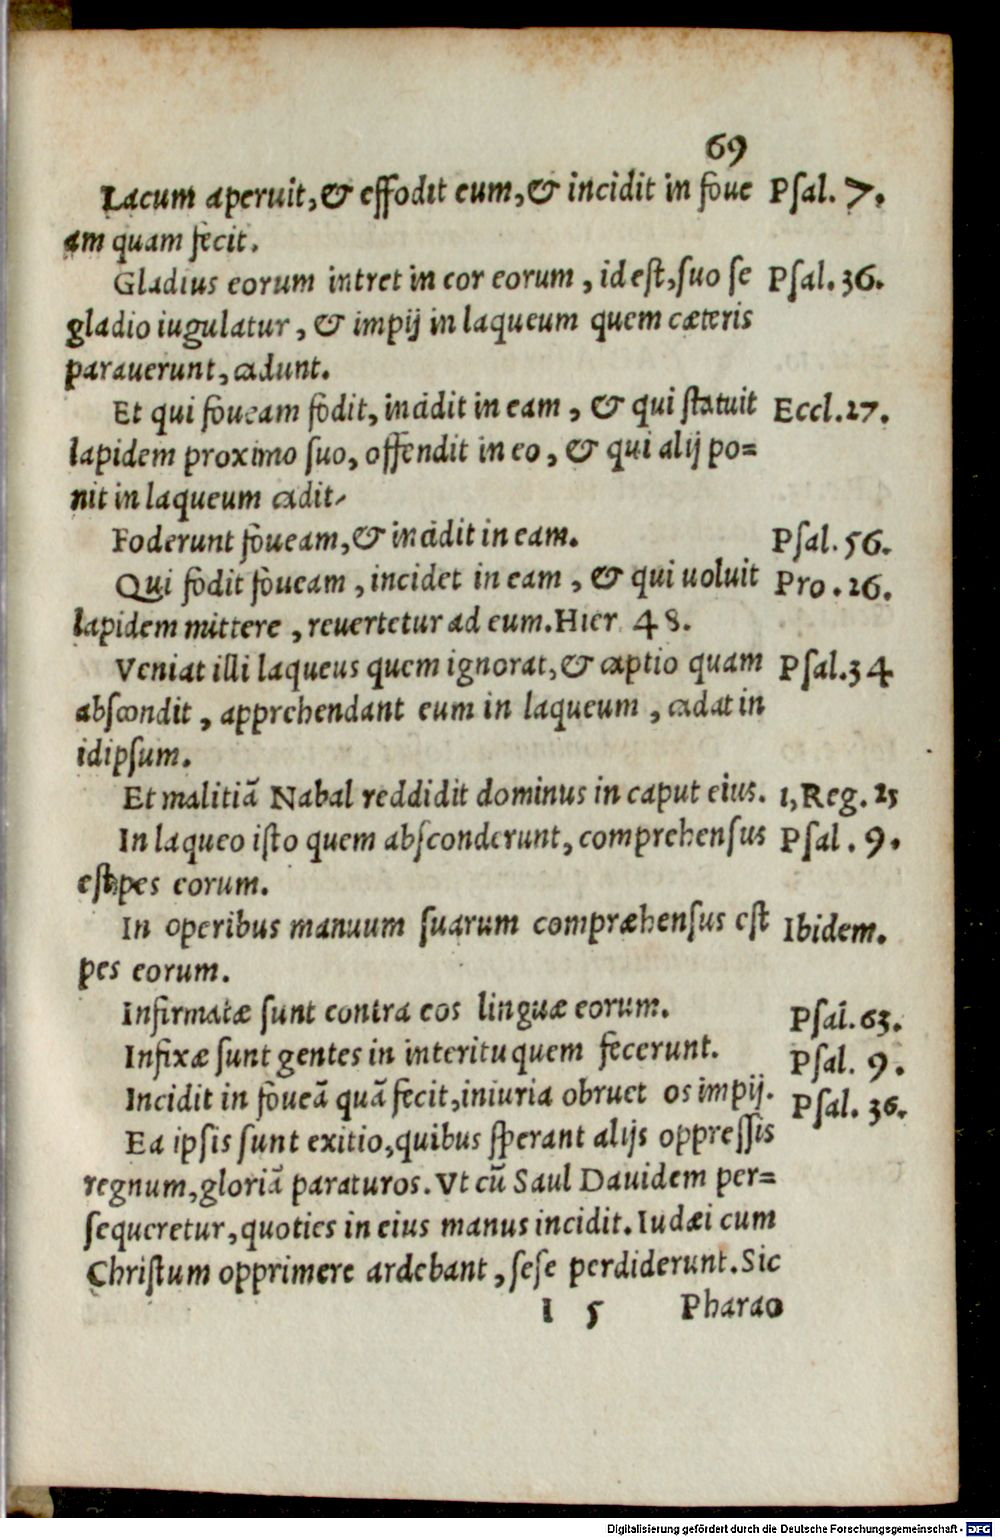 69
Lacum aperuit, & effodit eum, & incidit in foue Psal. 7.
am quam fecit.
Gladius eorum intret in cor eorum, id est, suo se Psal. 36.
gladio iugulatur, & impij in laqueum quem cæteris
parauerunt, cadunt.
Et qui foueam fodit, incidit in eam, & qui statuit Eccl. 27.
lapidem proximo suo, offendit in eo, & qui alij po=
nit in laqueum cadit.
Foderunt foueam, & incidit in eam. Psal. 56.
Qui fodit foueam, incidet in eam, & qui uoluit Pro. 26.
lapidem mittere, reuertetur ad eum. Hier 48.
Veniat illi laqueus quem ignorat, & captio quam Psal. 34
abscondit, apprehendant eum in laqueum, cadat in
idipsum.
Et malitiā Nabal reddidit dominus in caput eius. 1, Reg. 25
In laqueo isto quem absconderunt, comprehensus Psal. 9.
est pes eorum.
In operibus manuum suarum compræhensus est Ibidem.
pes eorum.
Infirmatæ sunt contra eos linguæ eorum. Psal. 63.
Infixæ sunt gentes in interitu quem fecerunt. Psal. 9.
Incidit in foueā quā fecit, iniuria obruet os impij. Psal. 36.
Ea ipsis sunt exitio, quibus sperant alijs oppressis
regnum, gloriā paraturos. Vt cū Saul Dauidem per=
sequeretur, quoties in eius manus incidit. Iudæi cum
Christum opprimere ardebant, sese perdiderunt. Sic
I 5 Pharao
Digitalisierung gefördert durch die Deutsche Forschungsgemeinschaft - DFG